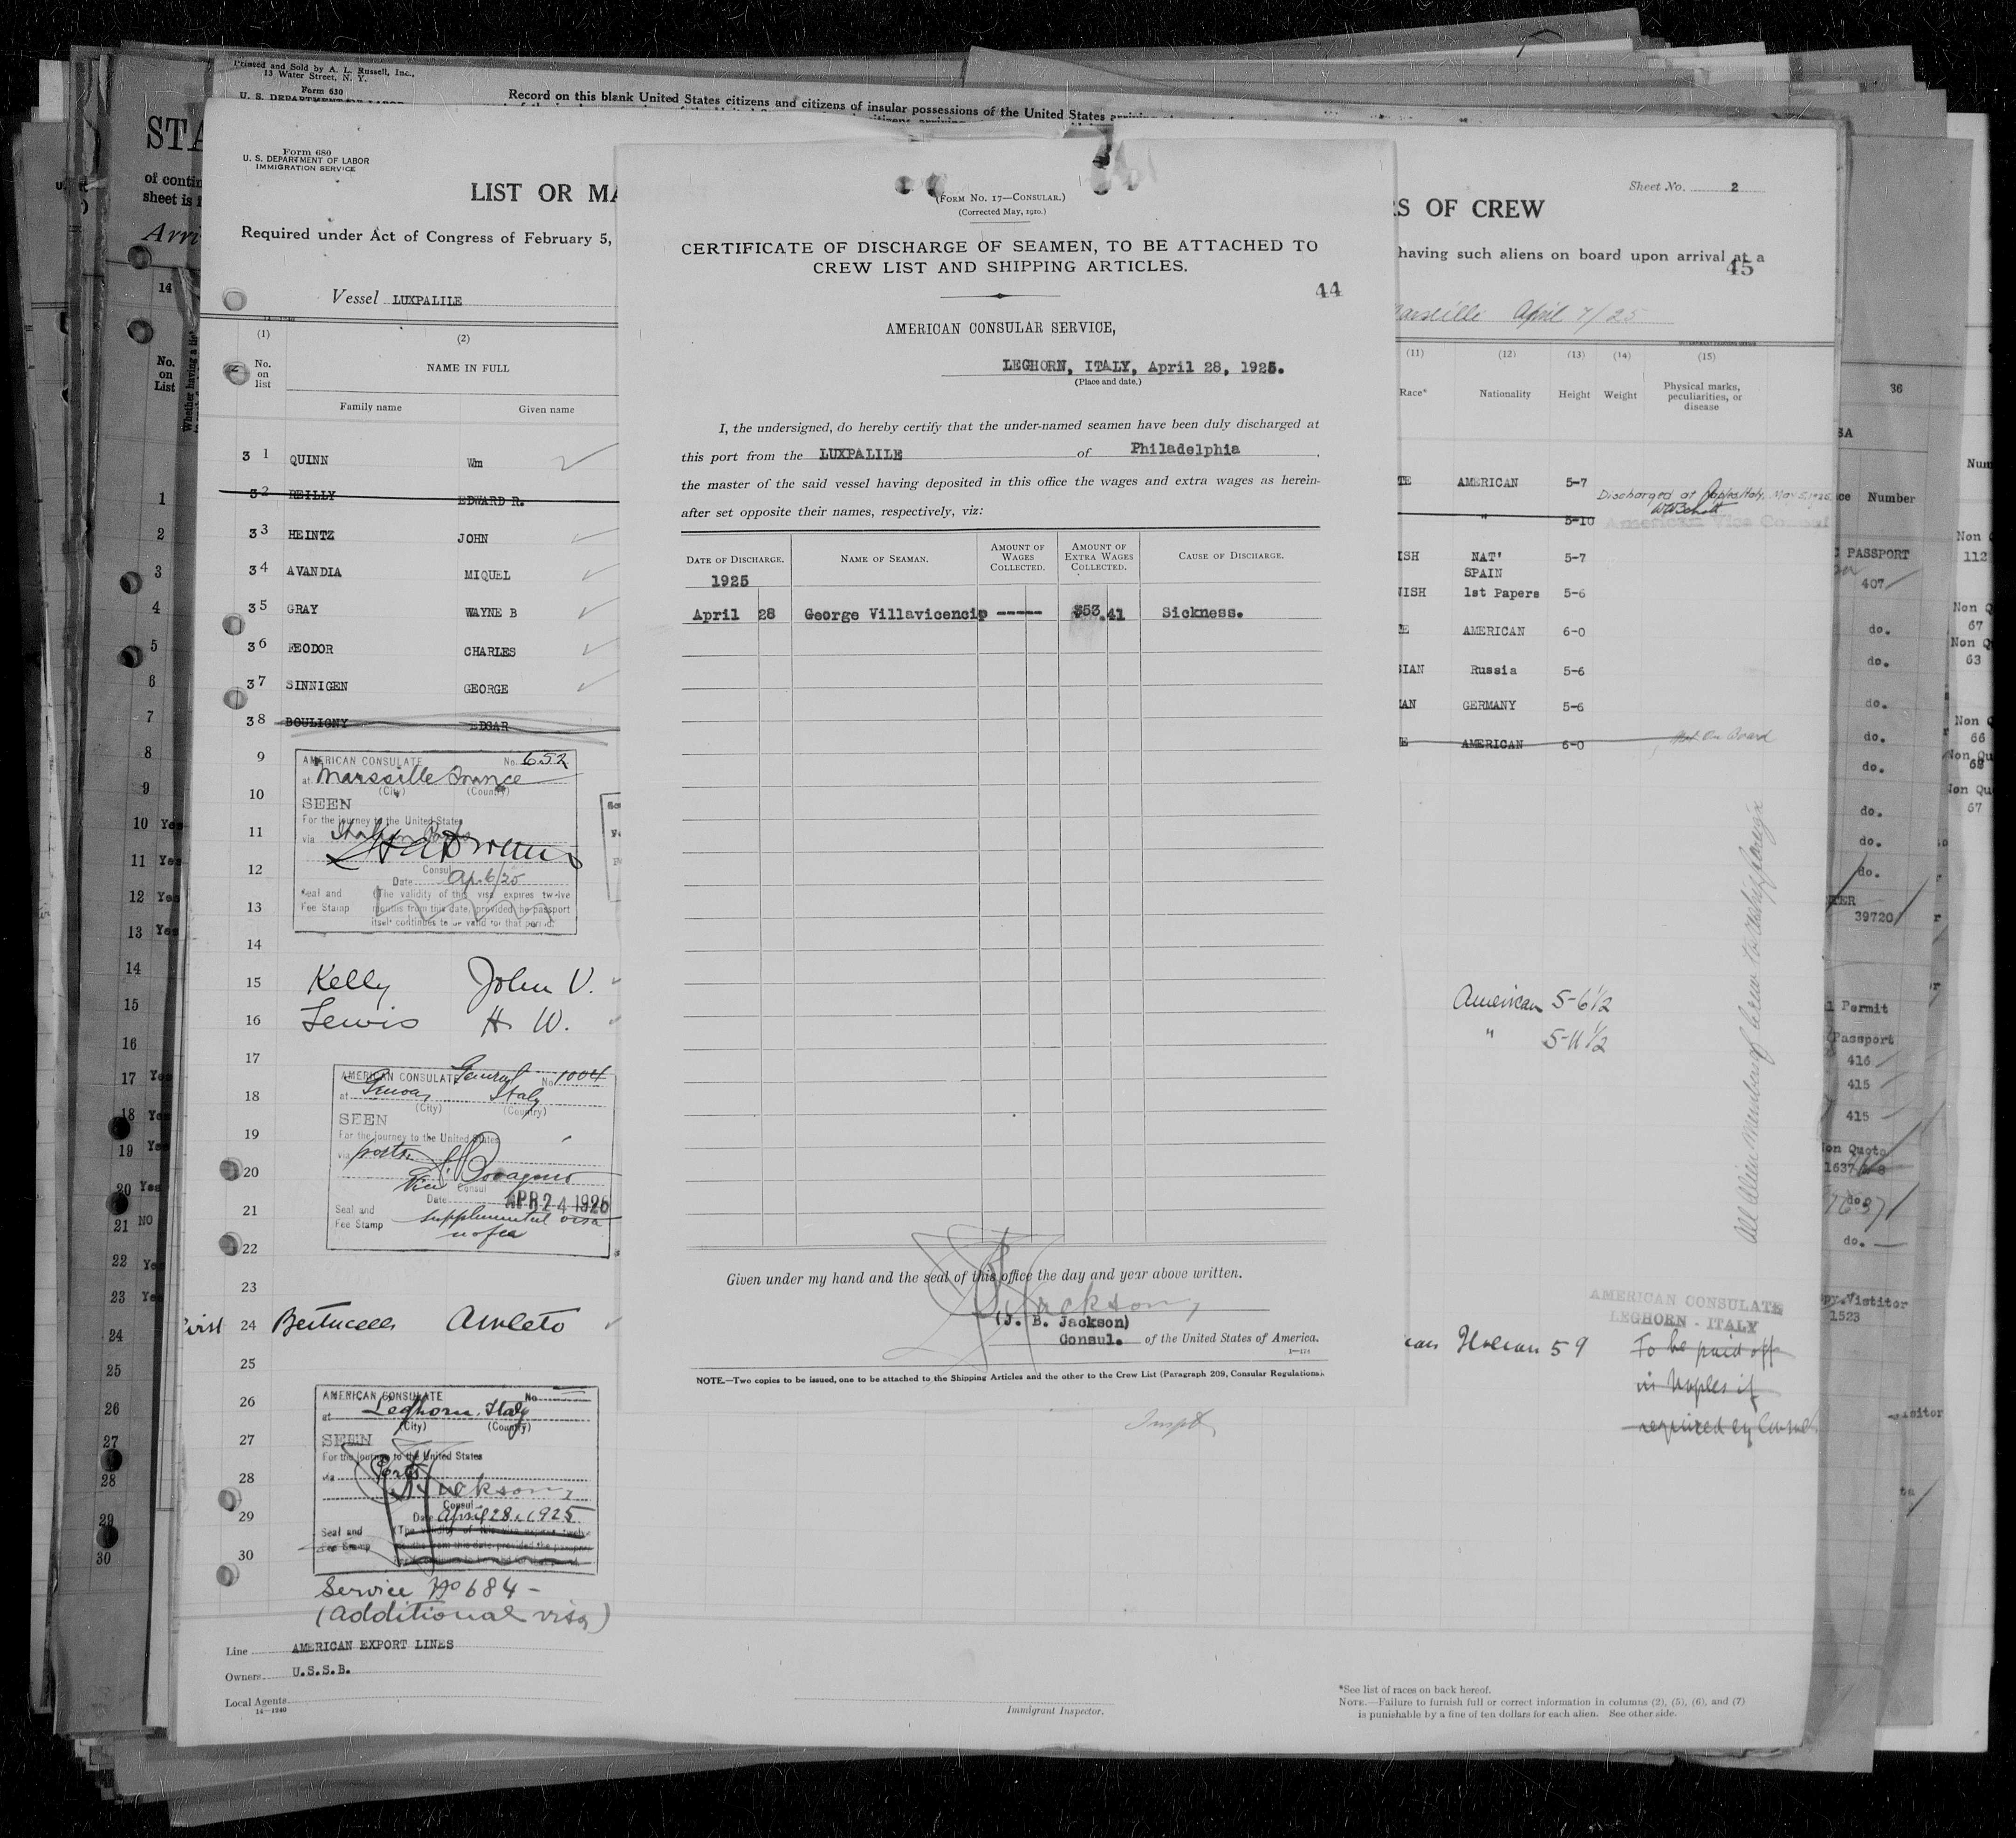 Printed and Sold by A. L. Russell, Inc.,
13 Water Street, N. Y.
Form 630
U. S. DEPARTMENT OF LABOR
Record on this blank United States citizens and citizens of insular possessions of the United States
STA
of contin
sheet is
Arri
Form 680
U. S. DEPARTMENT OF LABOR
IMMIGRATION SERVICE
LIST OR MA
Required under Act of Congress of February 5,
Vessel LUXPALILE
(1) (2)
No. on list
NAME IN FULL
Family name Given name
3 1 QUINN Wm
3 2 REILLY EDWARD R.
3 3 HEINTZ JOHN
3 4 AVANDIA MIQUEL
3 5 GRAY WAYNE B
3 6 FEODOR CHARLES
3 7 SINNIGEN GEORGE
3 8 BOULIGNY EDGAR
9
10
11
12
13
14
15 Kelly John V.
16 Lewis H. W.
17
18
19
20
21
22
23
24 Amleto
25
26
27
28
29
30
AMERICAN CONSULATE No. 652
at Marseille France
(City) (Country)
SEEN
For the journey to the United States
via
Consul
Date Ap. 6/25
Seal and
Fee Stamp
(The validity of this visa expires twelve
months from this date, provided he passport
itself continues to be valid for that period.
AMERICAN CONSULATE General No 1004
at Genoa Italy
(City) (Country)
SEEN
For the journey to the United States
via ports
Vice Consul
Date APR 24 1925
Seal and
Fee Stamp
supplemental visa
no fee
AMERICAN CONSULATE No
at Leghorn, Italy
(City) (Country)
SEEN
For the journey to the United States
via Ports
Jackson
Consul
Date April 28, 1925
Seal and
Fee Stamp
Service No 684 -
(Additional visa)
Line AMERICAN EXPORT LINES
Owners U.S.S.B.
Local Agents
14—1240
(FORM NO. 17—CONSULAR.)
(Corrected May, 1910.)
CERTIFICATE OF DISCHARGE OF SEAMEN, TO BE ATTACHED TO
CREW LIST AND SHIPPING ARTICLES.
44
AMERICAN CONSULAR SERVICE,
LEGHORN, ITALY, April 28, 1925.
(Place and date.)
I, the undersigned, do hereby certify that the under-named seamen have been duly discharged at
this port from the LUXPALILE of Philadelphia ,
the master of the said vessel having deposited in this office the wages and extra wages as herein-
after set opposite their names, respectively, viz:
DATE OF DISCHARGE. NAME OF SEAMAN. AMOUNT OF WAGES COLLECTED. AMOUNT OF EXTRA WAGES COLLECTED. CAUSE OF DISCHARGE.
1925
April 28 George Villavicencio ----- $53.41 Sickness.
Given under my hand and the seal of this office the day and year above written.
Jackson
(J. B. Jackson)
Consul. of the United States of America.
NOTE.—Two copies to be issued, one to be attached to the Shipping Articles and the other to the Crew List (Paragraph 209, Consular Regulations).
Immigrant Inspector.
Sheet No. 2
RS OF CREW
having such aliens on board upon arrival at a
45
Marseille April 7/25
(11) (12) (13) (14) (15)
Race* Nationality Height Weight Physical marks, peculiarities, or disease
TE AMERICAN 5-7
Discharged at Naples Italy, May 5, 1925
" 5-10 American Vice Consul
ISH NAT' SPAIN 5-7
NISH 1st Papers 5-6
E AMERICAN 6-0
SIAN Russia 5-6
AN GERMANY 5-6
E AMERICAN 6-0 Not On Board
American 5-6 1/2
" 5-11 1/2
AMERICAN CONSULATE
LEGHORN - ITALY
Italian 5 9
To be paid off
in Naples if
required by Consul
*See list of races on back hereof.
NOTE.—Failure to furnish full or correct information in columns (2), (5), (6), and (7)
is punishable by a fine of ten dollars for each alien. See other side.
14
No. on List
Whether having a tic
1
2
3
4
5
6
7
8
9
10 Yes
11 Yes
12 Yes
13 Yes
14
15
16
17 Yes
18 Yes
19 Yes
20 Yes
21 NO
22 Yes
23 Yes
24
25
26
27
28
29
30
36
Number
PASSPORT
407
do.
do.
do.
do.
do.
do.
do.
do.
39720
Permit
Passport
416
415
415
Non Quota
1637
do.
Vistitor
1523
Num
Non
112
Non Q
67
Non Q
63
Non Q
66
Non Qu
68
Non Qu
67